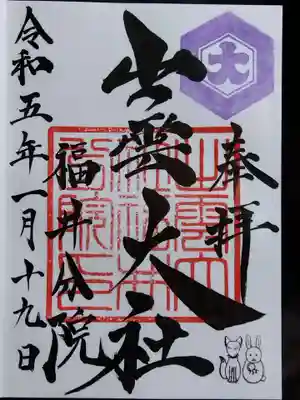 奉拝
出雲大社
福井分院
令和五年一月十九日
大